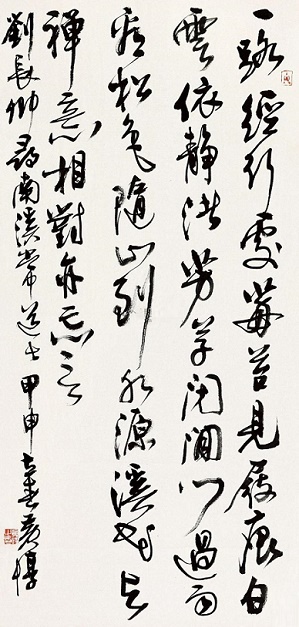 一路經行處莓苔見屐痕白
雲依靜渚芳草閉閒門過雨
看松色隨山到水源溪花與
禪意相對亦忘言
劉長卿尋南溪常道士甲申